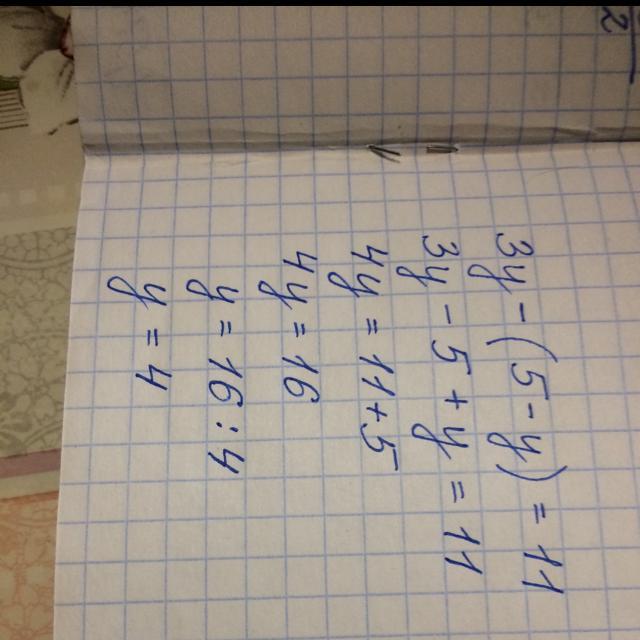 3y - (5 - y) = 11
3y - 5 + y = 11
4y = 11 + 5
4y = 16
y = 16 : 4
y = 4
2